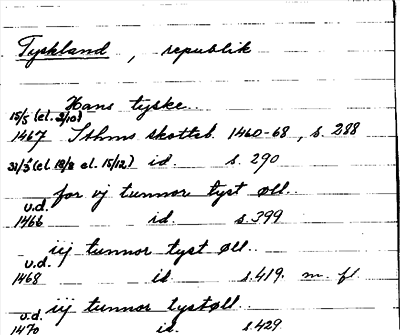 Tyskland, republik
Hans tyske.
15/5 (el. 3/10)
1467 Sthms skotteb. 1460-68, s. 288
31/3 (el. 18/8 el. 15/12) id. s. 290
for vj tunnor tyst öll.
u.d.
1466 id. s. 399
iij tunnor tyst öll.
u.d.
1468 id. s. 419. m. fl
iij tunnor tystöll.
u.d.
1470 id. s. 429.